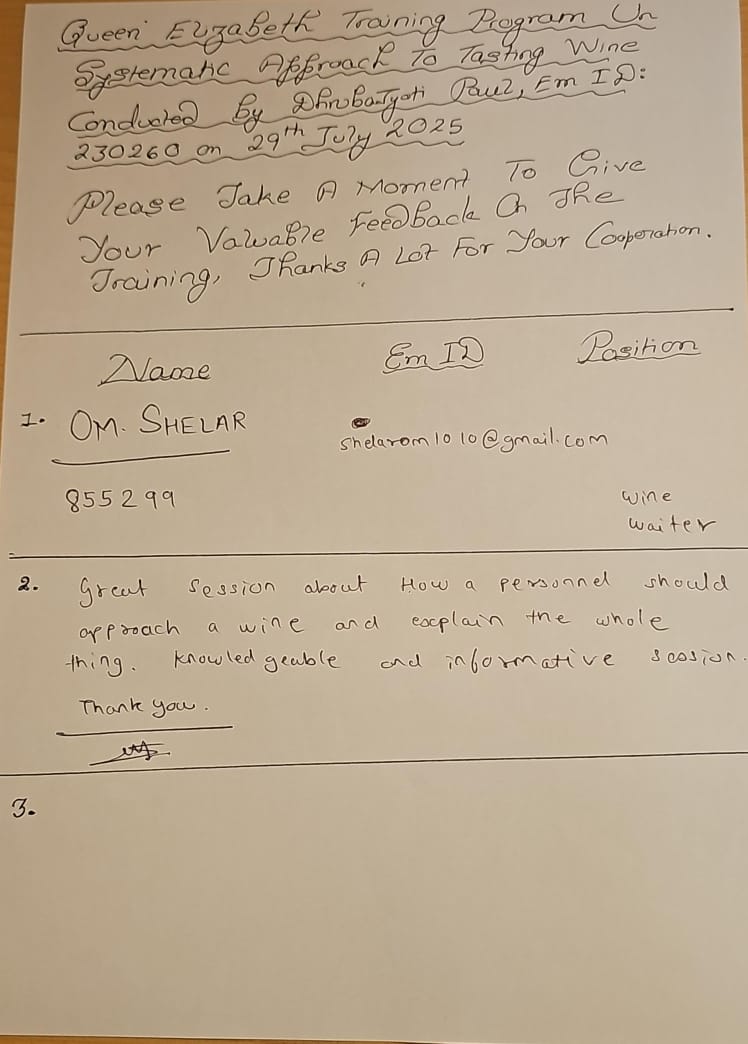 Queen Elizabeth Training Program On
Systematic Approach To Tasting Wine
Conducted By Dhrubajyoti Paul, Em ID:
230260 on 29th July 2025
Please Take A Moment To Give
Your Valuable Feedback On The
Training, Thanks A Lot For Your Cooperation.
Name Em ID Position
1. OM. SHELAR
shelarom1010@gmail.com
855299 wine
waiter
2. Great session about How a personnel should
approach a wine and explain the whole
thing. Knowledgeable and informative session.
Thank you.
3.